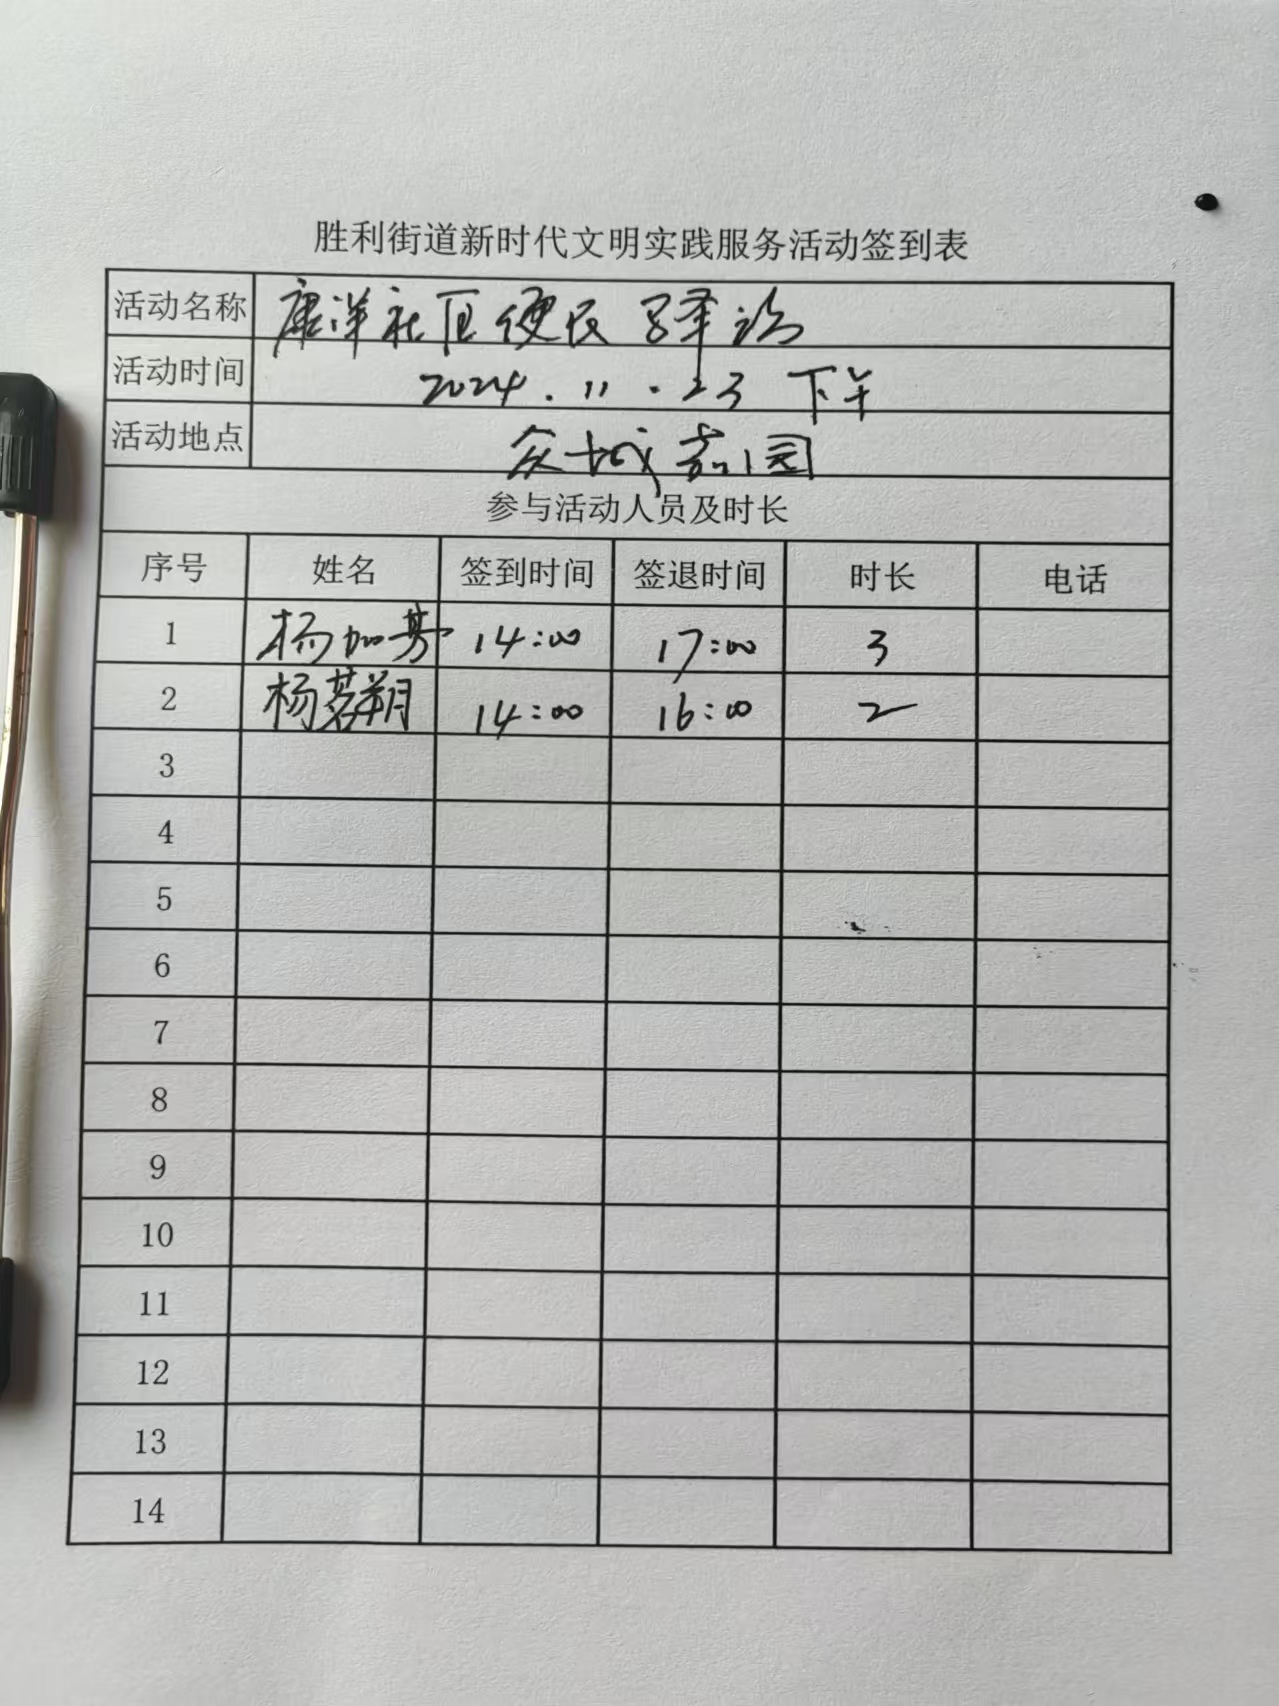 胜利街道新时代文明实践服务活动签到表
活动名称 康洋社区便民驿站
活动时间 2024.11.23 下午
活动地点 众城嘉园
参与活动人员及时长
序号 姓名 签到时间 签退时间 时长 电话
1 杨加芳 14:00 17:00 3
2 杨茗朔 14:00 16:00 2
3
4
5
6
7
8
9
10
11
12
13
14